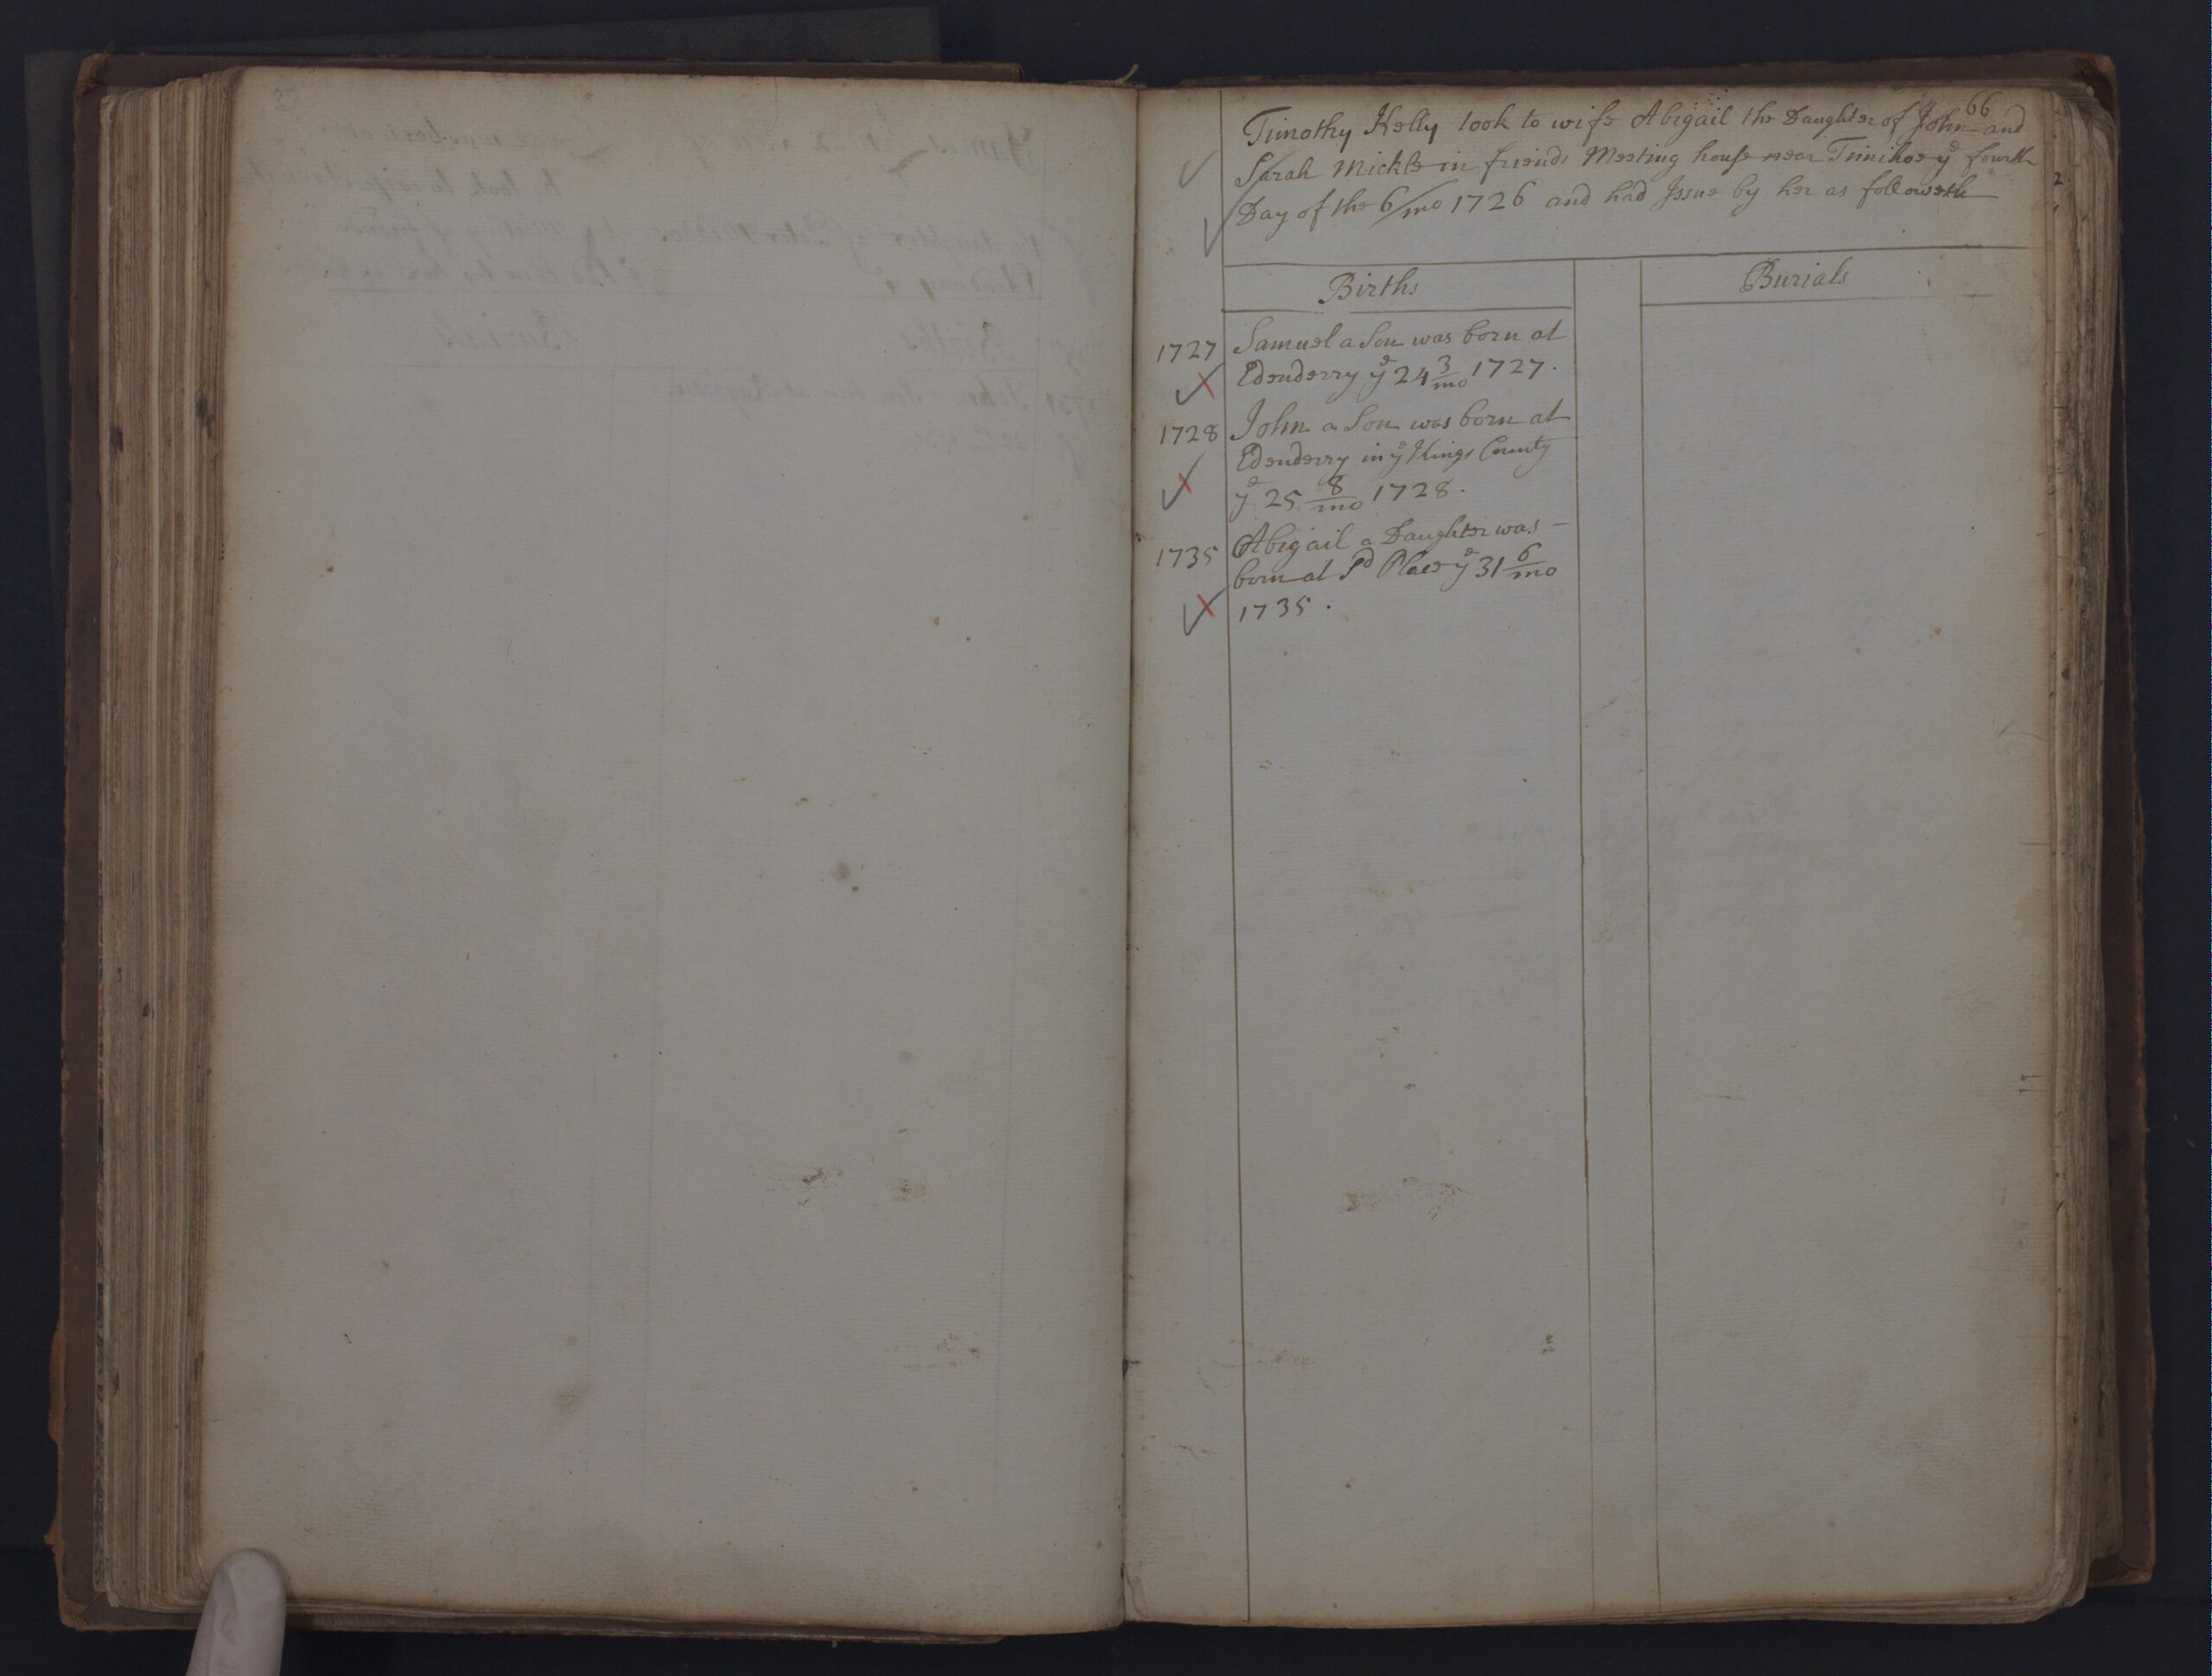 66
Timothy Kelly took to wife Abigail the Daughter of John and
Sarah Mickle in friends Meeting house near Timihoe yᵉ fourth
Day of the 6/mo 1726 and had Issue by her as followeth
Births
Burials
1727 Samuel a Son was born at
Edenderry yᵉ 24 3/mo 1727.
1728 John a Son was born at
Edenderry in yᵉ Kings County
yᵉ 25 8/mo 1728.
1735 Abigail a Daughter was
born at Sᵈ Place yᵉ 31 6/mo
1735.